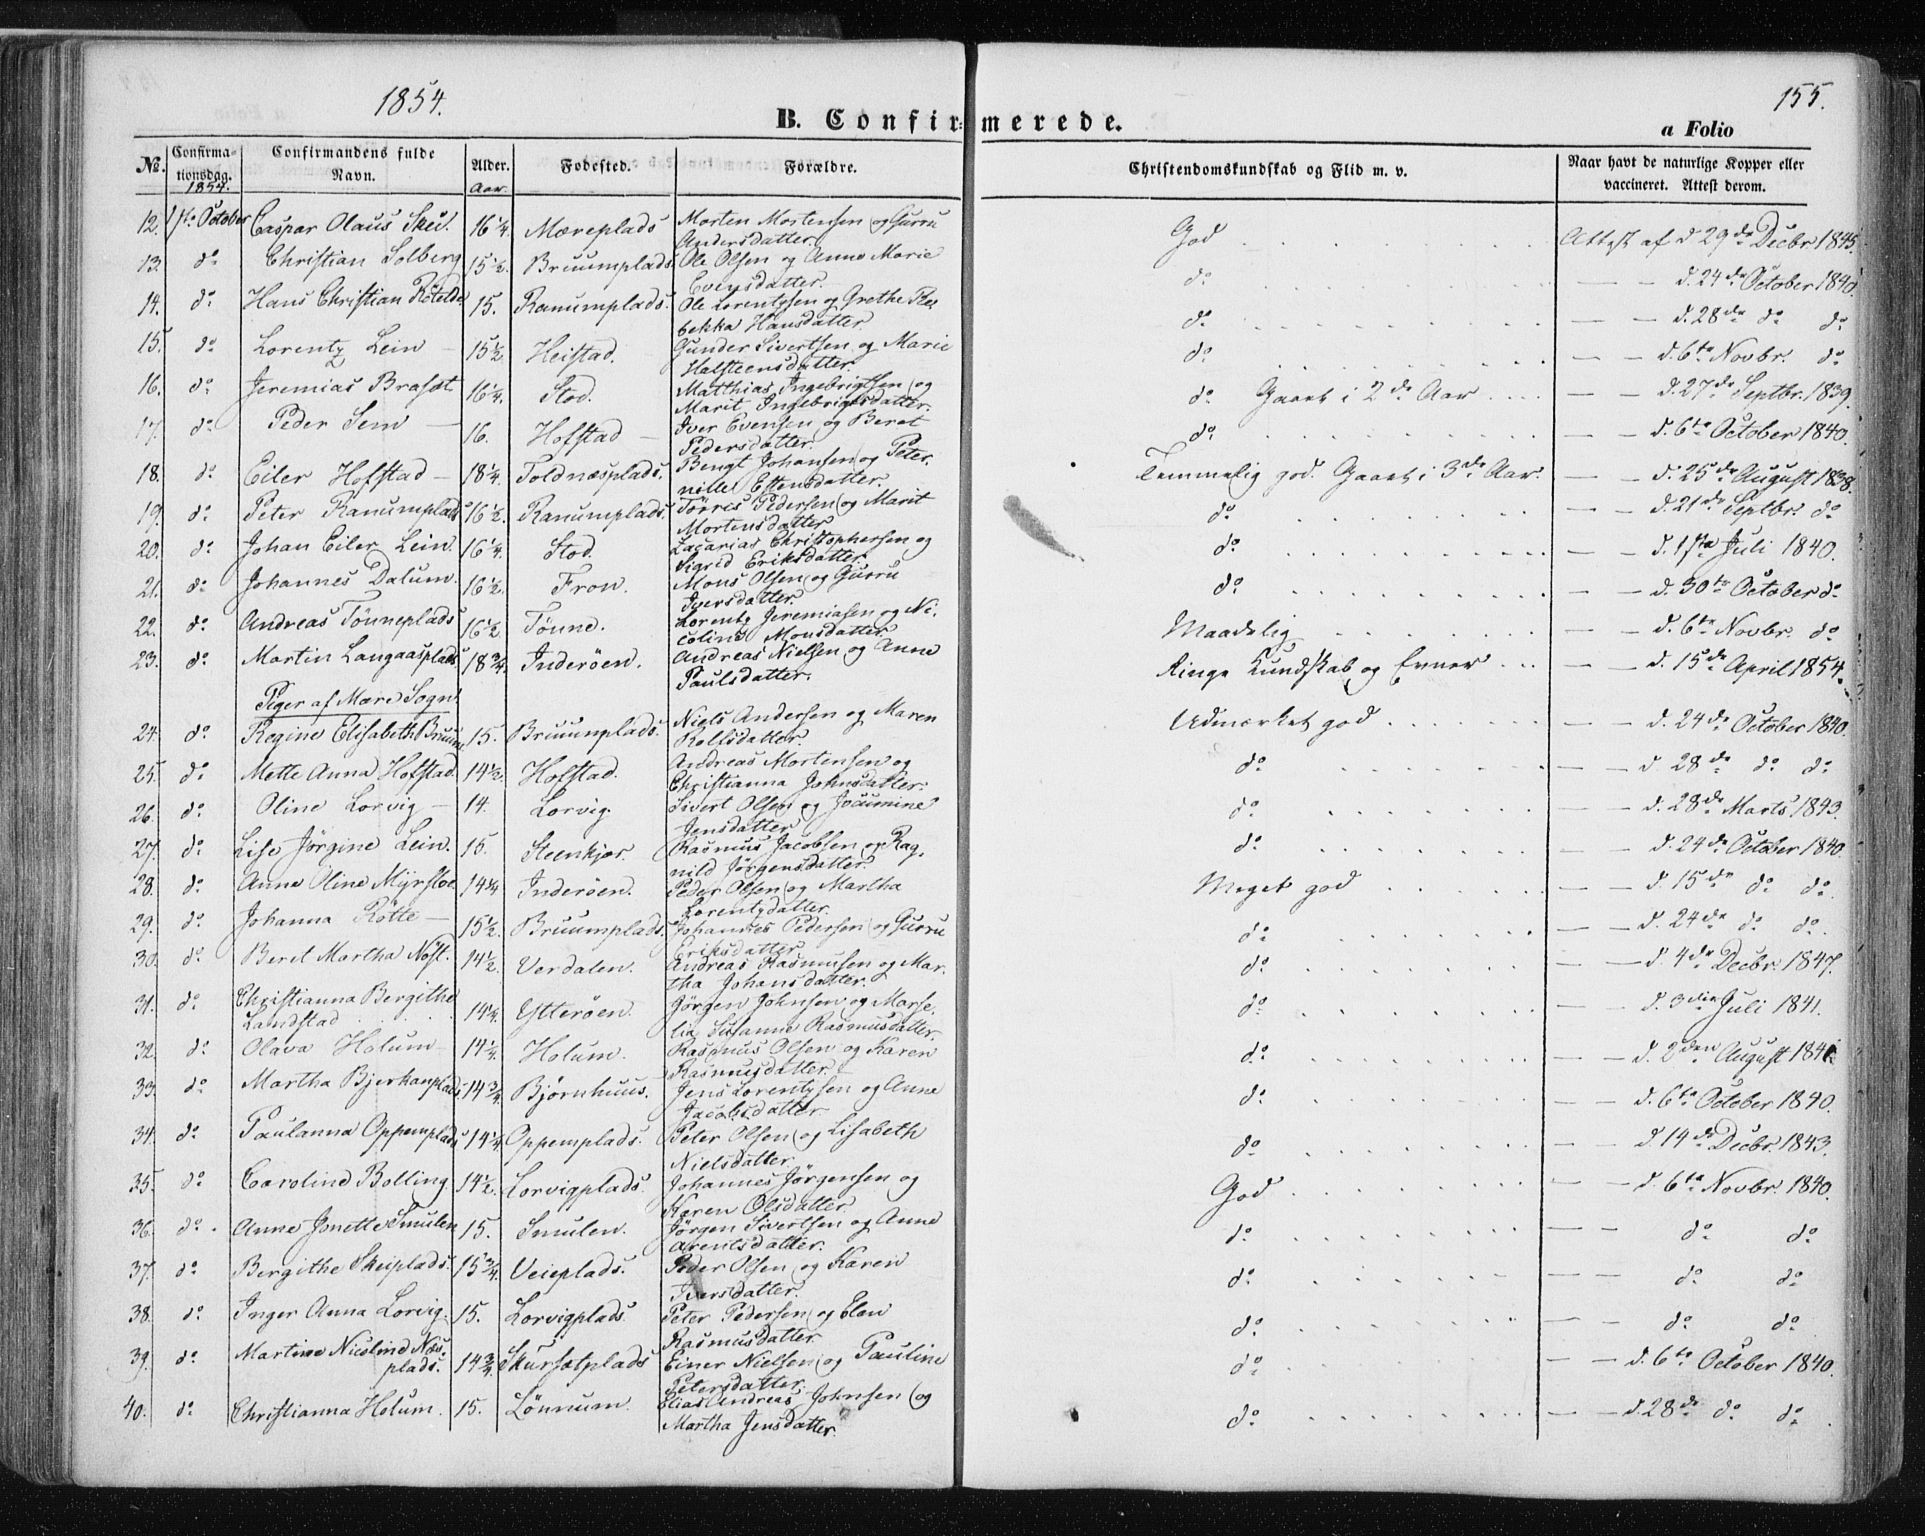 1854.
155.
B. Confirmerede.
a Folio
No. Confirmationsdag. Confirmandens fulde Navn. Alder. Fødested. Forældre. Christendomskundskab og Flid m. v. Naar havt de naturlige Kopper eller vaccineret. Attest derom.
1854. Aar.
12. 1ste October Caspar Olaus Skei. 16 1/4. Mæreplads Morten Mortensen og Gurru God Attest af d 29de Decbr 1845.
Andersdatter.
13. do Christian Solberg 15 1/2. Bruumplads. Ole Olsen og Anne Marie do — — d. 24de October 1840.
Evensdatter.
14. do Hans Christian 15. Ranumplads. Ole Lorentzsen og Grethe Re- do — — d. 28de do do
bekka Hansdatter.
15. do Lorentz Lein — 15 1/2. Heistad. Gunder Sivertsen og Marie do — — d. 6te Novbr. do
Halsteensdatter.
16. do Jeremias Brasæt 16 1/4. Stod. Matthias Ingebrigtsen og do Gaaet i 2de Aar — — d. 27de Septbr. 1839.
Marit Ingebrigtsdatter.
17. do Peder Sem — 16. Hofstad — Iver Evensen og Beret do. — — d. 6te October 1840.
Pedersdatter.
18. do Eiler Hofstad — 18 1/4. Toldnæsplads. Bengt Johansen og Peter- Temmelig god. Gaaet i 3de Aar. — — d. 25de August 1838.
nille Estensdatter.
19. do Peter Ranumplads 16 1/2. Ranumplads. Tørris Pedersen og Marit do — — d. 21de Septbr. do
Mortensdatter
20. do Johan Eiler Lein. 16 1/4. Stod. Zacarias Christophersen og do — — d. 1ste Juli 1840.
Sigrid Eriksdatter.
21. do Johannes Dalum. 16 1/2. Fron. Mons Olsen og Gurru do — — d. 30te October do
Iversdatter.
22. do Andreas Tønneplads 16 1/2. Tønne. Lorentz Jeremiasen og Ni- Maadelig — — d. 6te Novbr. do
coline Monsdatter
23. do Martin Langaasplads 18 3/4. Inderøen. Andreas Nielsen og Anne Ringe Kundskab og Evner — — d. 15de April 1854.
Paulsdatter.
Piger af Mære Sogn.
24. do Regine Elisabeth Bruum 15. Bruumplads. Niels Andersen og Maren Udmærket god — — d. 24de October 1840.
Rolfsdatter.
25. do Mette Anna Hofstad. 14 1/2. Hofstad. Andreas Mortensen og do — — d 28de do do
Christianna Johnsdatter.
26. do Oline Lorvig — 14. Lorvig. Sivert Olsen og Joumine do — — d. 28de Marts 1843.
Jensdatter
27. do Lise Jørgine Lein. 15. Steenkjær. Rasmus Jacobsen og Rag- do — — d. 24de October 1840.
nild Jørgensdatter.
28. do Anne Oline 14 1/4 Inderøen. Peder Olsen og Martha Meget god — — d. 15de do do
Lorentzdatter.
29. do Johanna Rötte — 15 1/2. Bruumplads. Johannes Pedersen og Gurru do — — d. 24de do do.
Eriksdatter.
30. do Beret Martha Nöst. 14 1/2. Verdalen. Andreas Rasmussen og Mar- do — — d. 4de Decbr. 1847.
tha Johansdatter.
31. do Christianna Bergithe 14 1/4. Ytterøen. Jørgen Johnsen og Marse- do — — d. 3die Juli 1841.
Landstad lia Susanne Rasmusdatter.
32. do Olava Holum — 14 1/4. Holum. Rasmus Olsen og Karen do. — — d. 2den August
Rasmusdatter.
33. do Martha Bjerkanplads 14 3/4. Bjørnhuus. Jens Lorentzsen og Anne do. — — d. 6te October 1840.
Jacobsdatter
34. do Paulanna Oppemplads 14 1/4 Oppemplads. Peter Olsen og Lisabeth do — — d. 14de Decbr. 1843.
Nielsdatter.
35. do Carolind Bolling 14 1/2. Lorvigplads. Johannes Jörgensen og God — — d. 6te Novbr. 1840.
Karen Olsdatter
36. do. Anne Jonette Smulen 15. Smulen. Jørgen Sivertsen og Anne do. — — do do
Arentsdatter.
37. do Bergithe Skeiplads. 15 3/4. Veieplads. Peder Olsen og Karen do. — — do do
Iversdatter.
38. do Inger Anna Lorvig. 15. Lorvigplads. Peter Pedersen og Elen do. — — do. do
Rasmusdatter.
39. do Martine Nicolind Næs- 14 3/4 Skursætplads Einer Nielsen og Pauline do — — d. 6te October 1840.
plads. Petersdatter.
40. do Christianna Holum. 15. Lönnum. Elias Andreas Johnsen og do — — d. 28de do do
Martha Jensdatter.